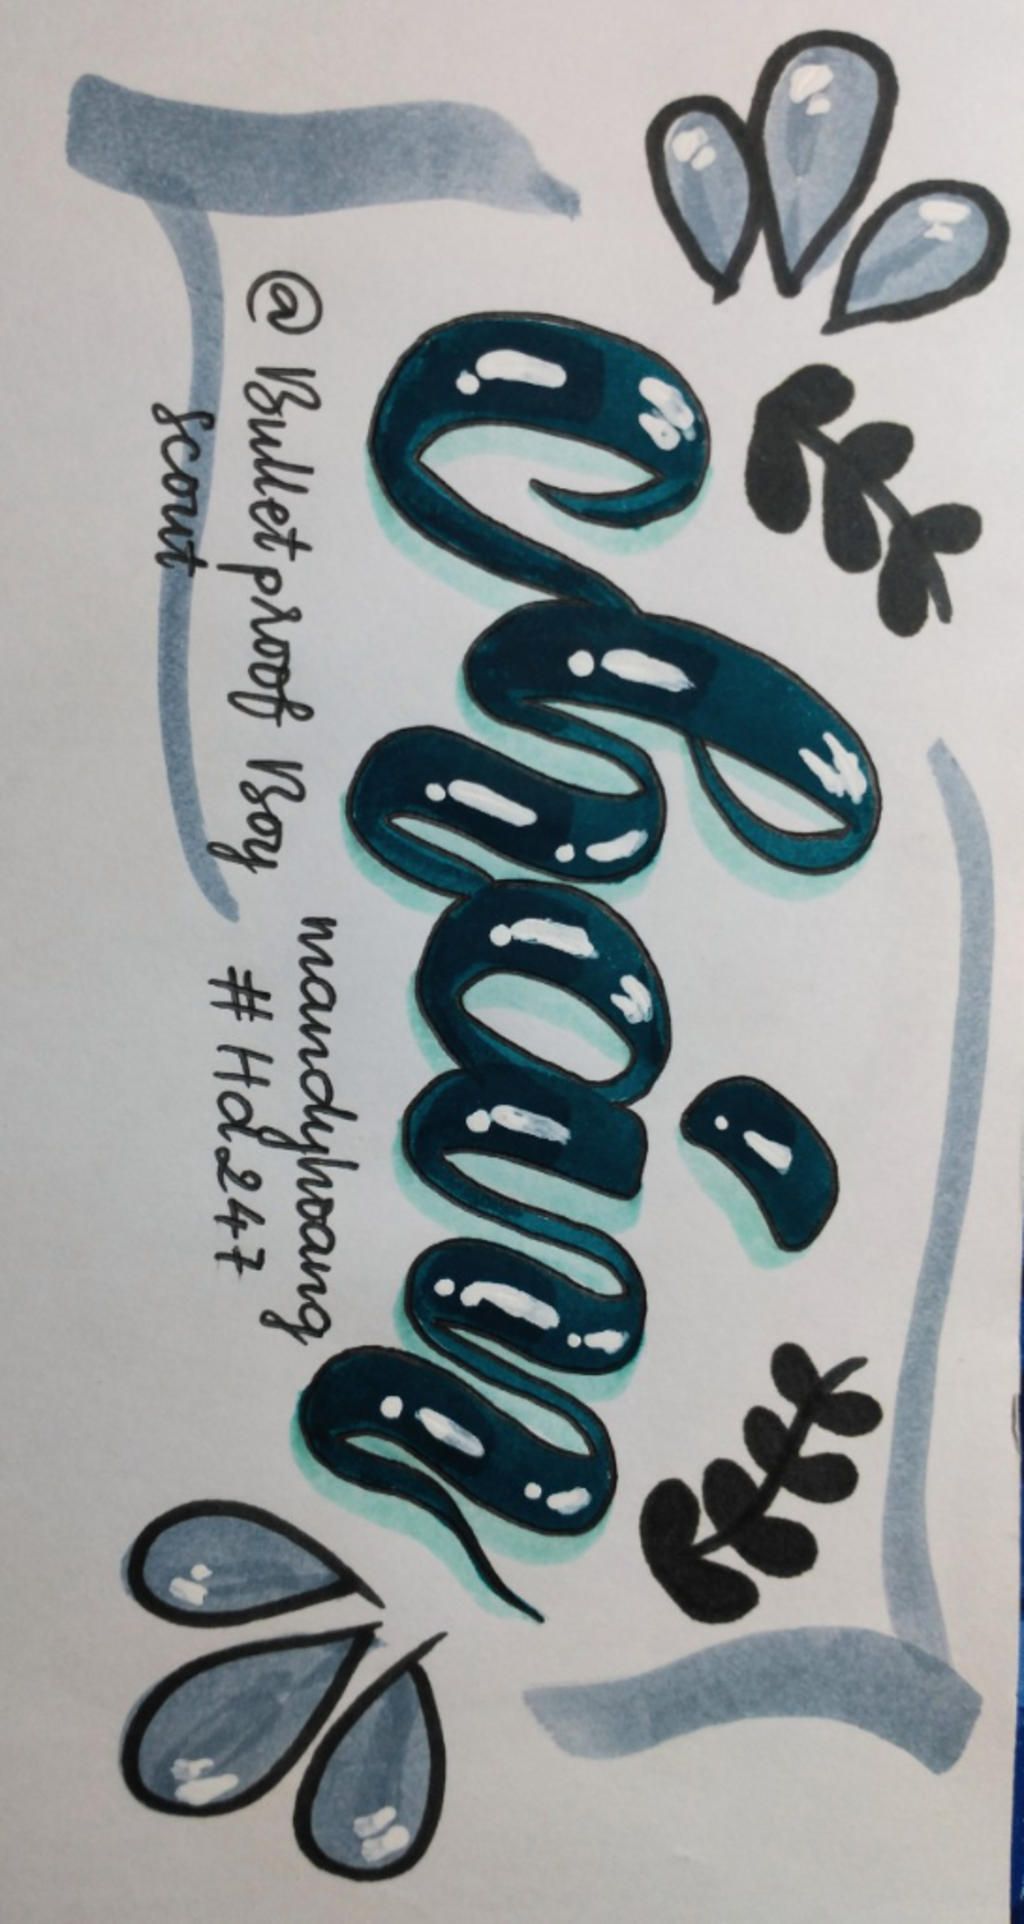 Chán
@ Bulletproof Boy
scout
mandyhoang
#Hd247